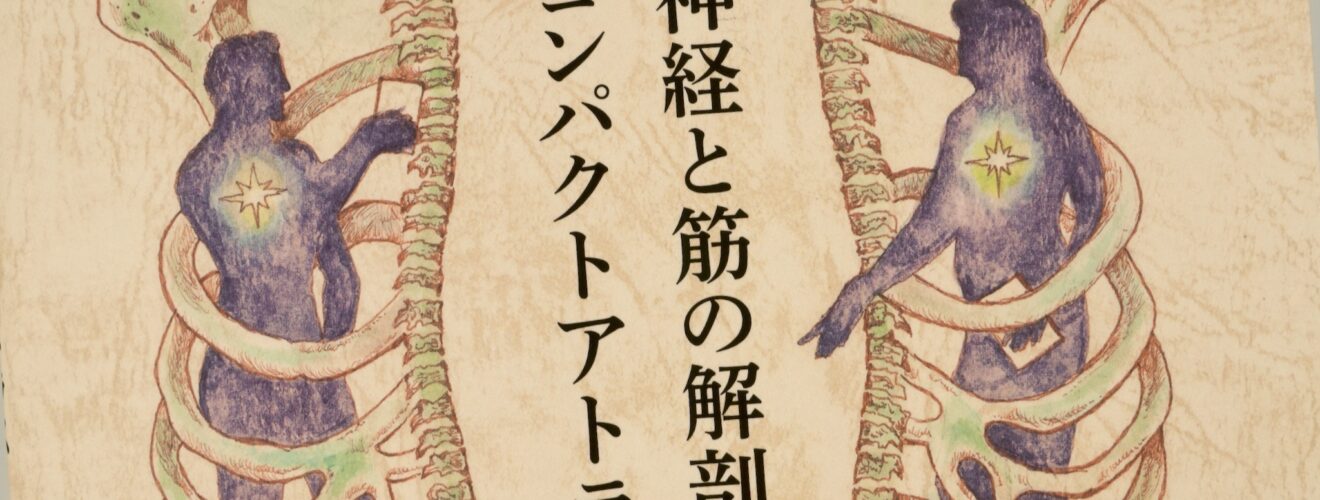 神経と筋の解剖
コンパクトアトラ